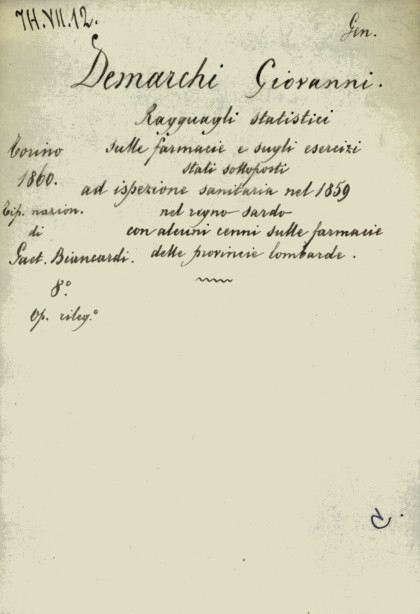 7H.VII.12.
Gen.
Demarchi Giovanni.
Rayguagli statistici
sulle farmacie e sugli esercizi
stati sottoposti
ad ispezione sanitaria nel 1859
nel regno sardo
con alcuni cenni sulle farmacie
delle provincie lombarde.
Torino
1860.
Tip. nazion.
di
Gaet. Biancardi.
8.°
Op. rileg.°